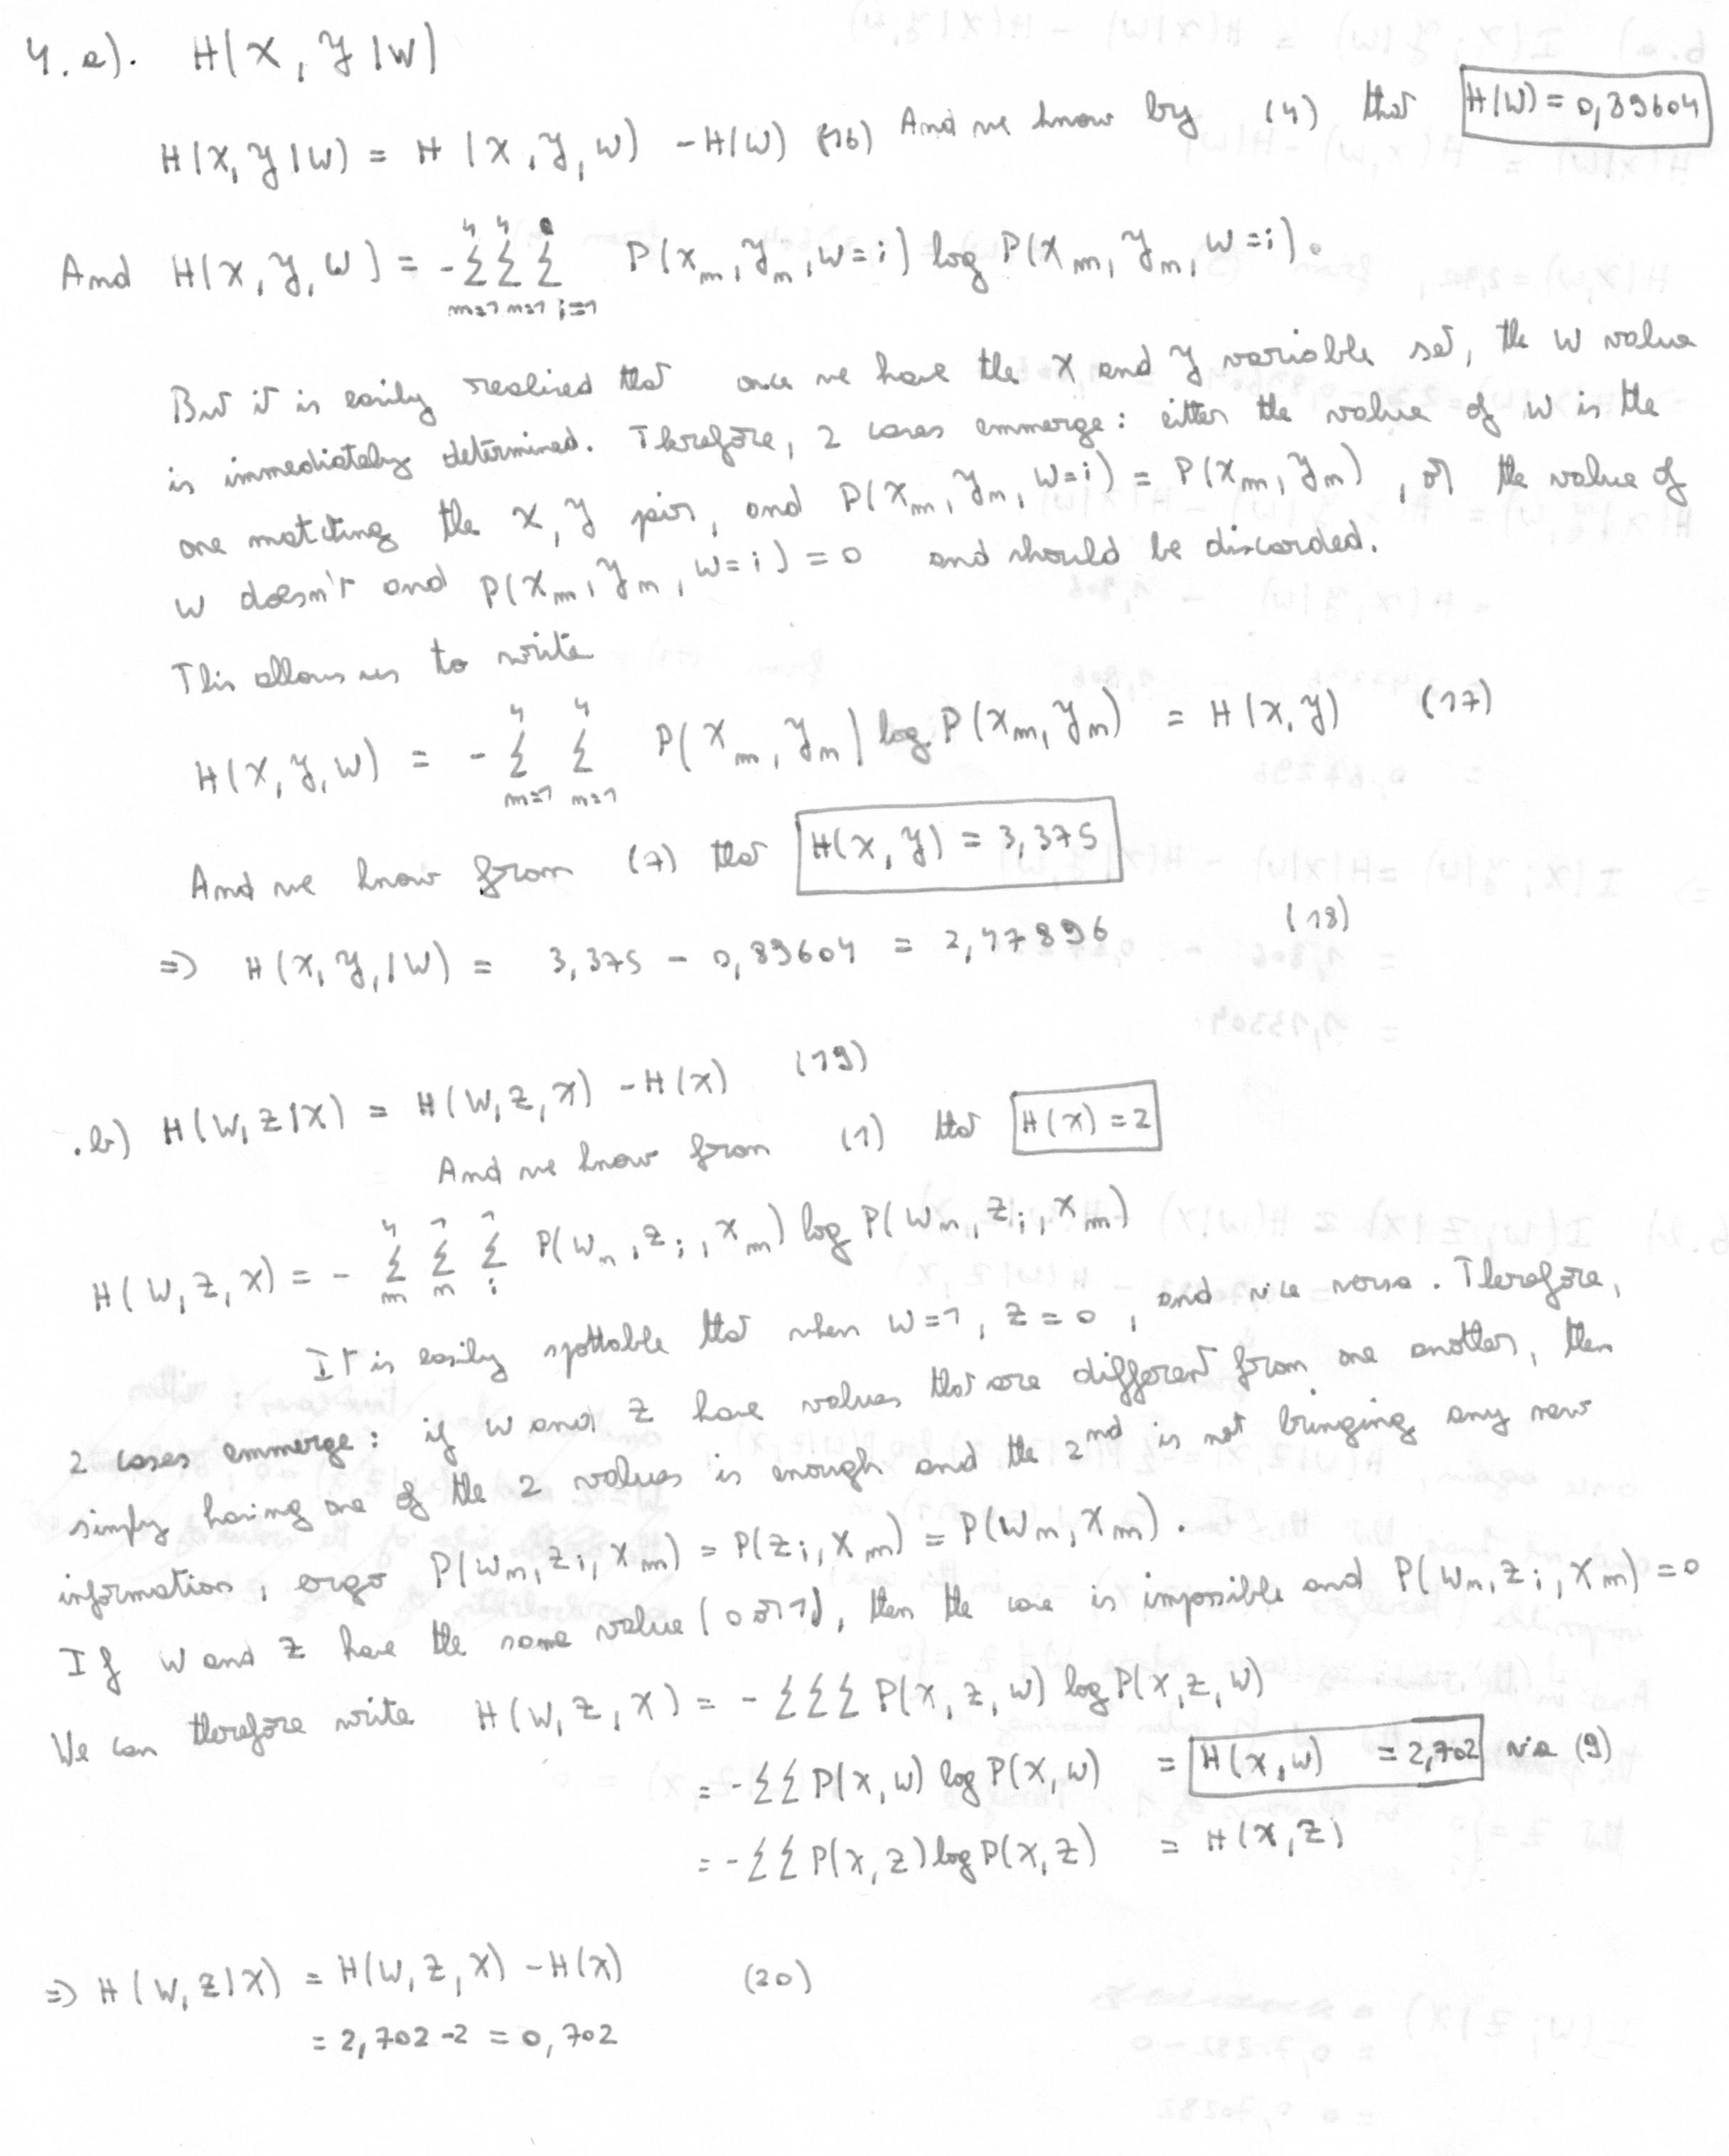 4. a). H(X, Y|W)
H(X, Y|W) = H(X, Y, W) - H(W) (16) And we know by (4) that H(W) = 0,89604
And H(X, Y, W) = - Σ Σ Σ P(x_m, y_n, w=i) log P(x_m, y_n, w=i).
4 4
m=1 n=1 i=1
But it is easily realized that once we have the X and Y variable set, the W value
is immediately determined. Therefore, 2 cases emmerge: either the value of W is the
one matching the X, Y pair, and P(x_m, y_n, w=i) = P(x_m, y_n), or the value of
W doesn't and P(x_m, y_n, w=i) = 0 and should be discarded.
This allows us to write
H(X, Y, W) = - Σ Σ P(x_m, y_n) log P(x_m, y_n) = H(X, Y) (17)
4 4
m=1 n=1
And we know from (7) that H(X, Y) = 3,375
=> H(X, Y, |W) = 3,375 - 0,89604 = 2,47896 (18)
.b) H(W, Z|X) = H(W, Z, X) - H(X) (19)
And we know from (1) that H(X) = 2
H(W, Z, X) = - Σ Σ Σ P(w_n, z_i, x_m) log P(w_n, z_i, x_m)
4 1 1
m n i
It is easily spottable that when W=1, Z=0, and vice versa. Therefore,
2 cases emmerge: if W and Z have values that are different from one another, then
simply having one of the 2 values is enough and the 2nd is not bringing any new
information, ergo P(w_n, z_i, x_m) = P(z_i, x_m) = P(w_n, x_m).
If W and Z have the same value (0 or 1), then the case is impossible and P(w_n, z_i, x_m) = 0
We can therefore write H(W, Z, X) = - Σ Σ Σ P(x, z, w) log P(x, z, w)
= - Σ Σ P(x, w) log P(x, w) = H(X, W) = 2,702 via (9)
= - Σ Σ P(x, z) log P(x, z) = H(X, Z)
=> H(W, Z|X) = H(W, Z, X) - H(X) (20)
= 2,702 - 2 = 0,702